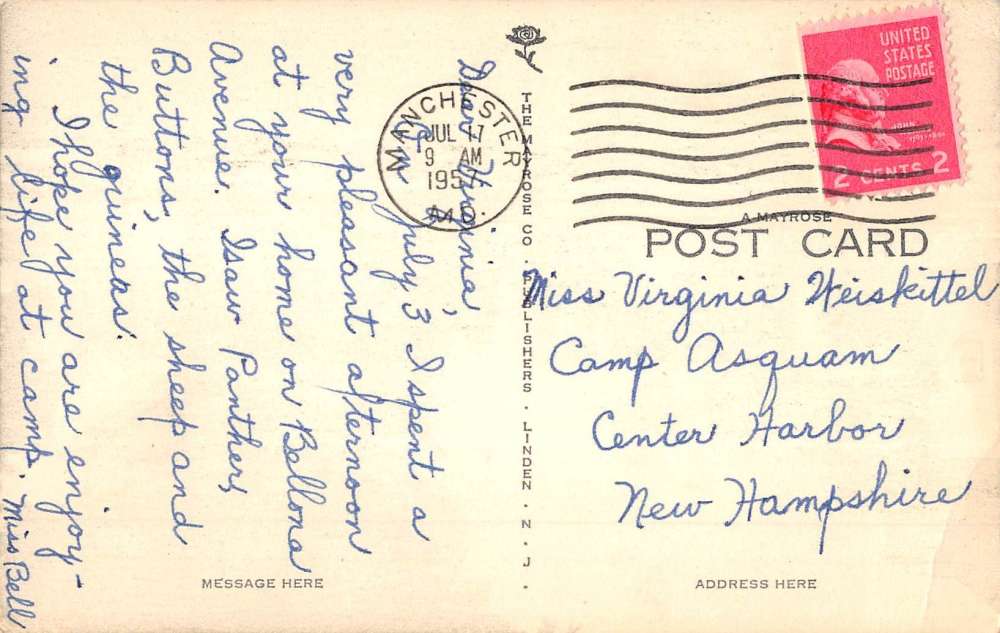 Dear Virginia,
On July 3 I spent a
very pleasant afternoon
at your home on Bellona
Avenue. I saw Panther,
Buttons, the sheep and
the guineas.
I hope you are enjoy-
ing life at camp. Miss Bell
MESSAGE HERE
THE MAYROSE CO. PUBLISHERS. LINDEN. N. J.
MANCHESTER
JUL 17
9 AM
MD.
UNITED
STATES
POSTAGE
JOHN
2 CENTS 2
A MAYROSE
POST CARD
Miss Virginia Weiskittel
Camp Asquam
Center Harbor
New Hampshire
ADDRESS HERE